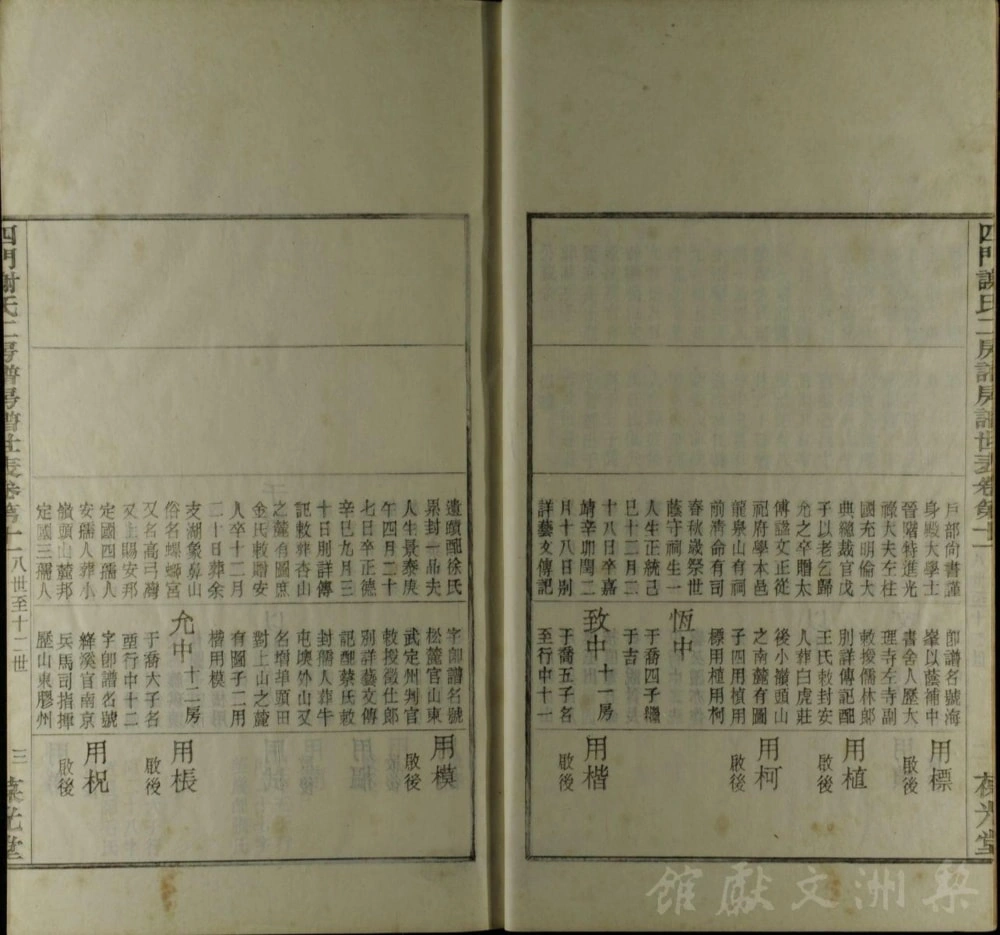 四門謝氏二房譜房譜世表卷第十二
戶部尚書謹
身殿大學士
晉階特進光
祿大夫左柱
國充明倫大
典總裁官戊
子以老乞歸
允之卒贈太
傅諡文正從
祀府學本邑
龍泉山有祠
前濟命有司
春秋歲祭世
蔭守祠生一
人生正統己
巳十二月二
十八日卒嘉
靖辛卯閏二
月十八日別
詳藝文傳記
卽譜名號海
峯以蔭補中
書舍人歷大
理寺左寺副
敕授儒林郎
別詳傳記配
王氏敕封安
人葬白虎莊
後小嶺頭山
之南麓有圖
子四用楨用
標用植用柯
恆中
于喬四子繼
于吉
致中 十一房
于喬五子名
至行中十一
用標
啟後
用植
啟後
用柯
啟後
用楷
啟後
棟光堂
遺頤配徐氏
累封一品夫
人生景泰庚
午四月二十
七日卒正德
辛巳九月三
十日別詳傳
記敕葬杏山
之麓有圖庶
金氏敕贈安
人卒十二月
二十日葬余
支湖象鼻山
俗名螺螄宮
又名高弓灣
又上賜安邦
定國四孺人
安孺人葬小
嶺頭山麓邦
定國三孺人
字卽譜名號
松麓官山東
武定州判官
敕授徵仕郎
別詳藝文傳
記配蔡氏敕
封孺人葬牛
屯墺外山又
名壻華頭田
對上山之麓
有圖子二用
楷用模
允中 十二房
于喬六子名
䇯行中十二
字卽譜名號
絳溪官南京
兵馬司指揮
歷山東膠州
用模
啟後
用棖
啟後
用柷
啟後
四門謝氏二房譜房譜世表卷第十二 八世至十二世
三
棟光堂
梨洲文獻館